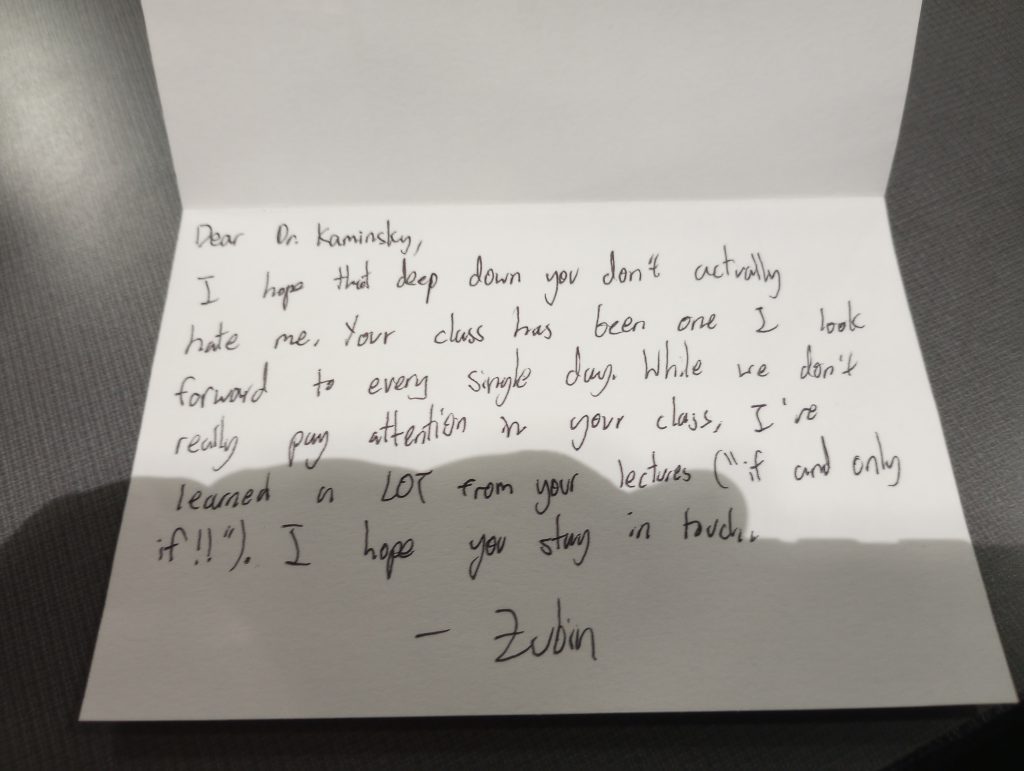 Dear Dr. Kaminsky,
I hope that deep down you don't actually
hate me. Your class has been one I look
forward to every single day. While we don't
really pay attention in your class, I've
learned a LOT from your lectures ("if and only
if!!"). I hope you stay in touch.
- Zubin